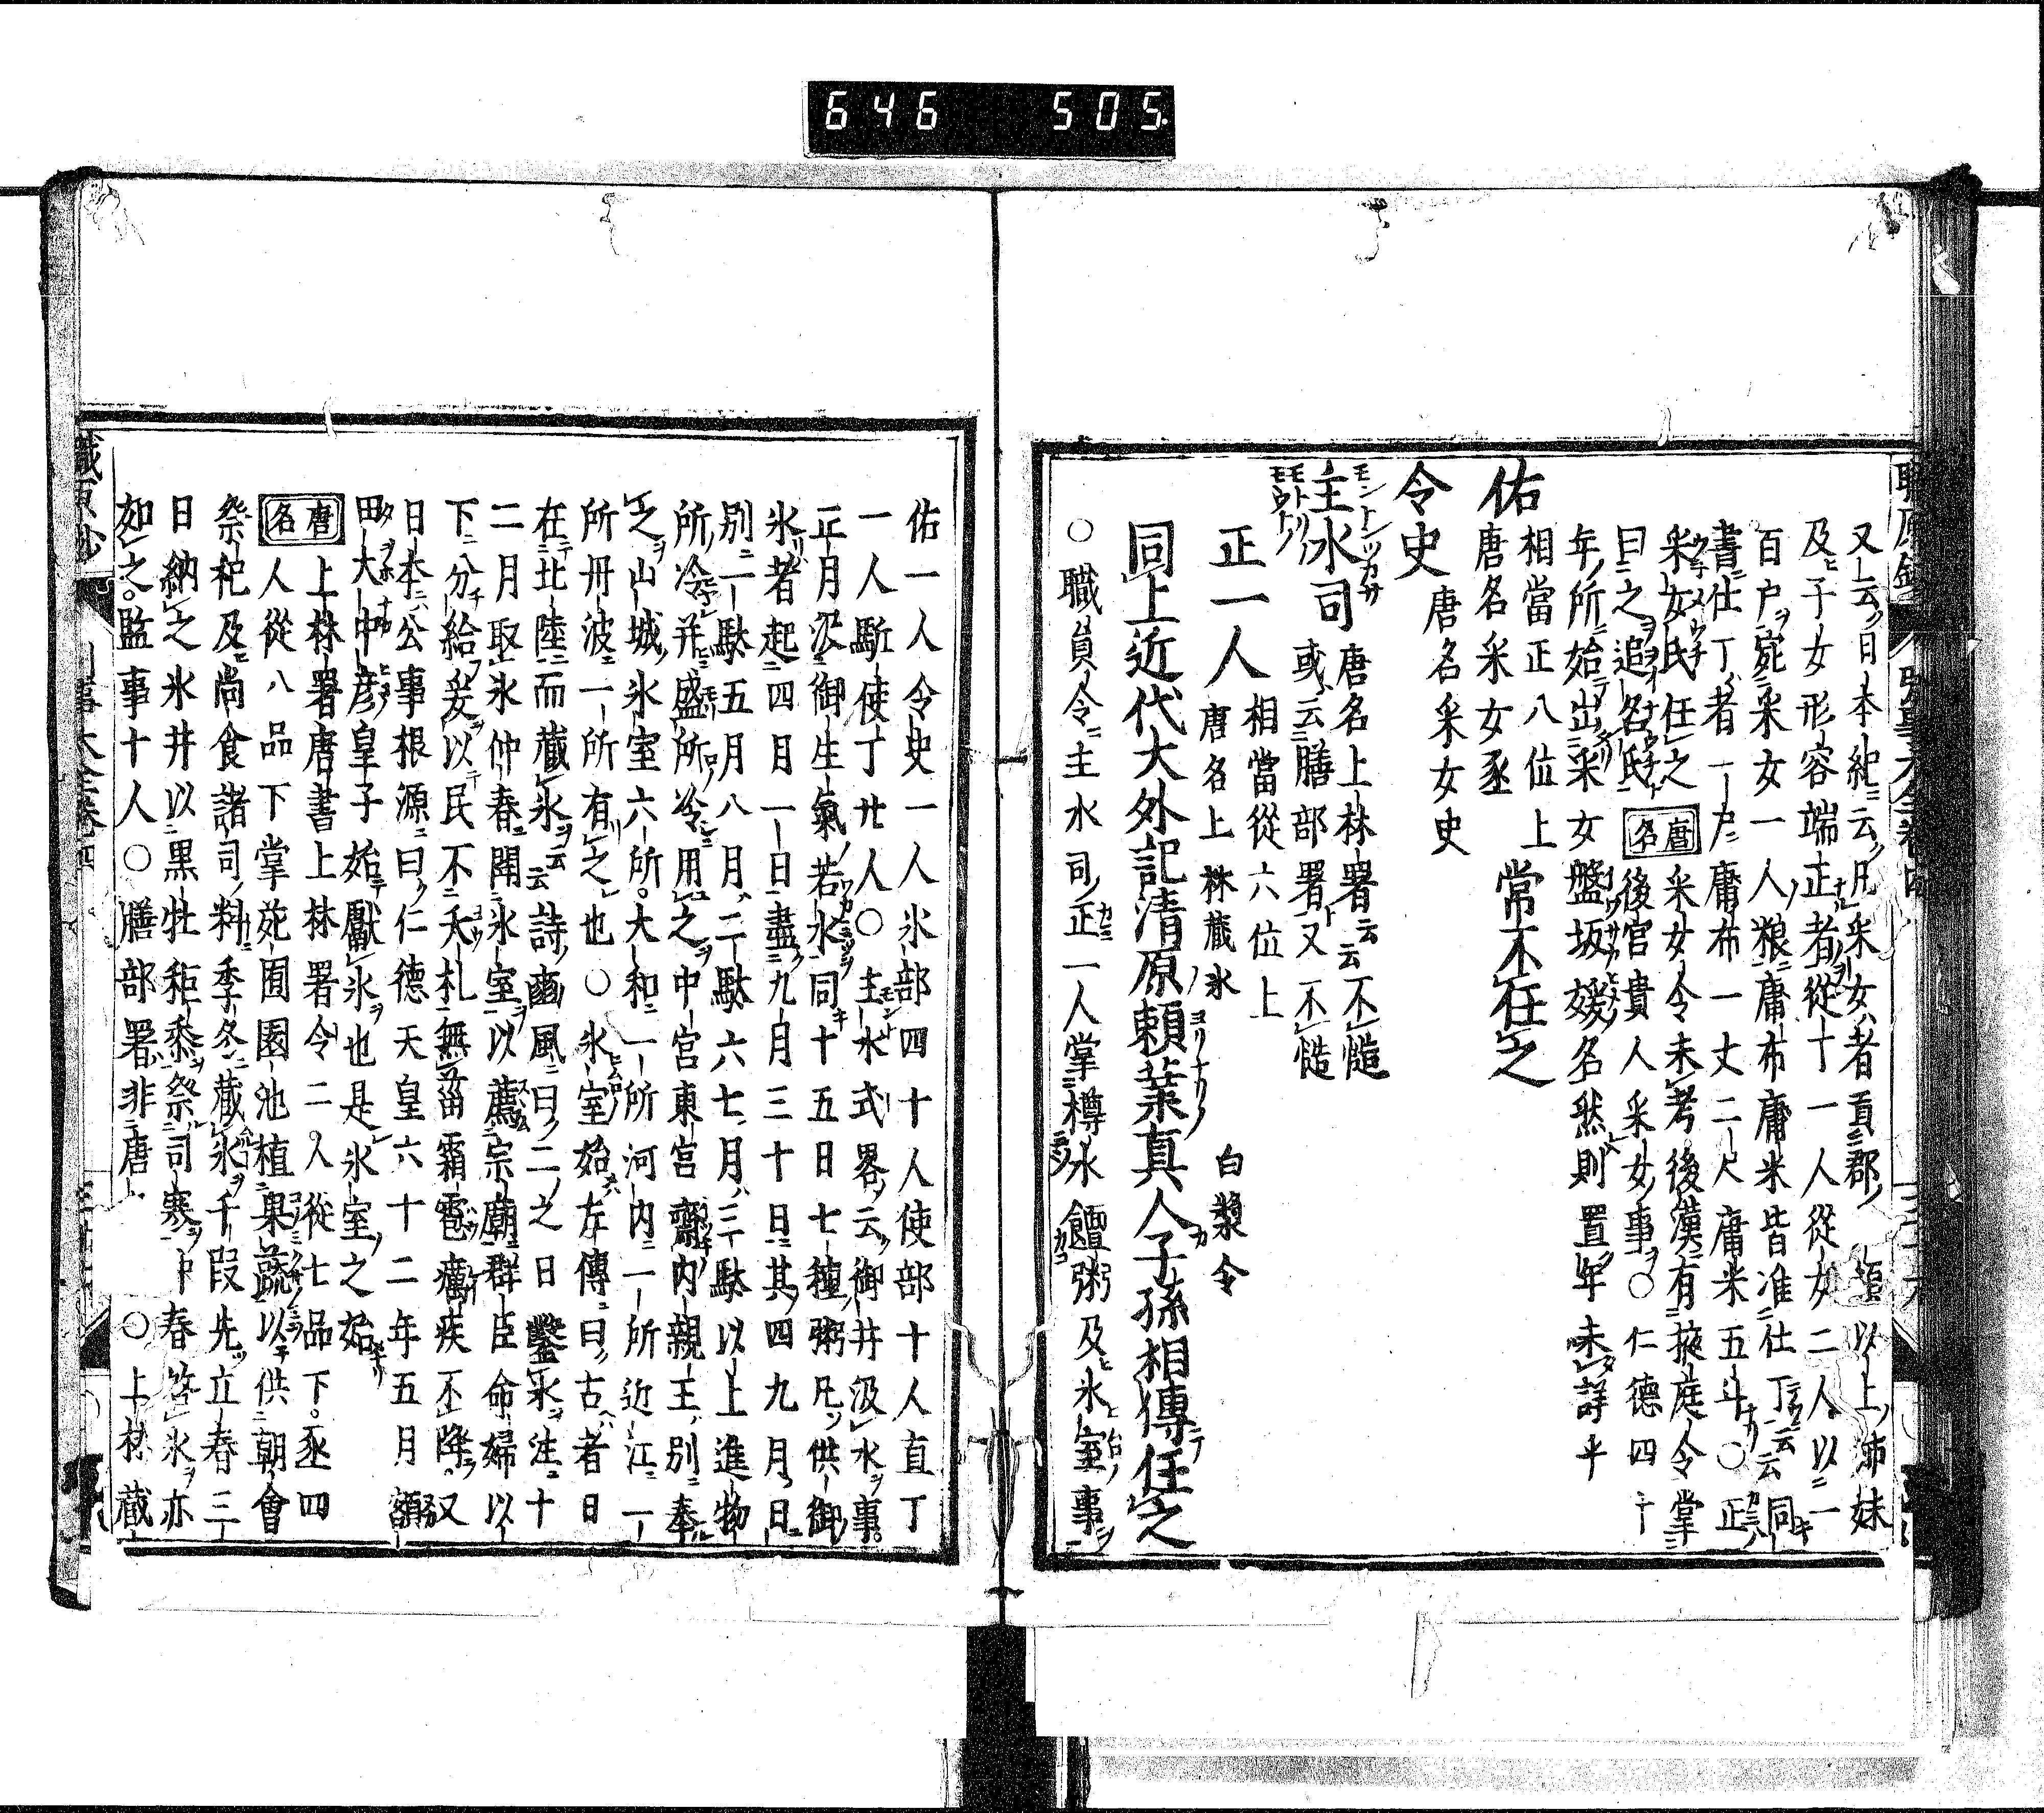 646 505
又云日本紀云凡采女者貢郡以上姉妹
及子女形容端正者從十一人從女二人以一
百戸宛采女一人粮庸布庸米皆准仕丁云云同
書仕丁者一戸庸布一丈二尺庸米五斗〇正
采女氏任之采女令未考後漢有掖庭令掌
曰之追名氏唐名後宮貴人采女事〇仁德四十
年所始出采女盤坂媛名然則置年未詳乎
佑 相當正八位上 常不任之
唐名采女丞
令史 唐名采女史
主水司 唐名上林署云云不慥
モンドツカサ
モトリ
或云膳部署又不慥
正一人 相當從六位上
唐名上林藏氷 白漿令
同上近代大外記清原頼業真人子孫相傳任之
〇職員令主水司正一人掌樽氷饘粥及氷室事
佑一人令史一人氷部四十人使部十人直丁
一人駈使丁廿人〇主水式畧云御井汲水事
正月汲御生氣若水同十五日七種粥凡供御
氷者起四月一日盡九月三十日其四九月日
別一駄五月八月二駄六七月三駄以上進物
所冷并盛所冷用之中宮東宮齋内親王別奉
之山城氷室六所大和一所河内一所近江一
所丹波一所有之也〇氷室始左傳曰古者日
在北陸而藏氷云云詩豳風曰二之日鑿氷注十
二月取氷仲春開氷室以薦宗廟群臣命婦以
下分給爰以民不夭札無菑霜雹癘疾不降又
日本公事根源曰仁德天皇六十二年五月額
田大中彦皇子始獻氷也是氷室之始
唐名 上林署唐書上林署令二人從七品下丞四
人從八品下掌苑囿園池植果蔬以供朝會
祭祀及尚食諸司料季冬藏氷千段先立春三
日納之氷井以黒牡秬黍祭司寒仲春啓氷亦
如之監事十人〇膳部署非唐〇上林藏